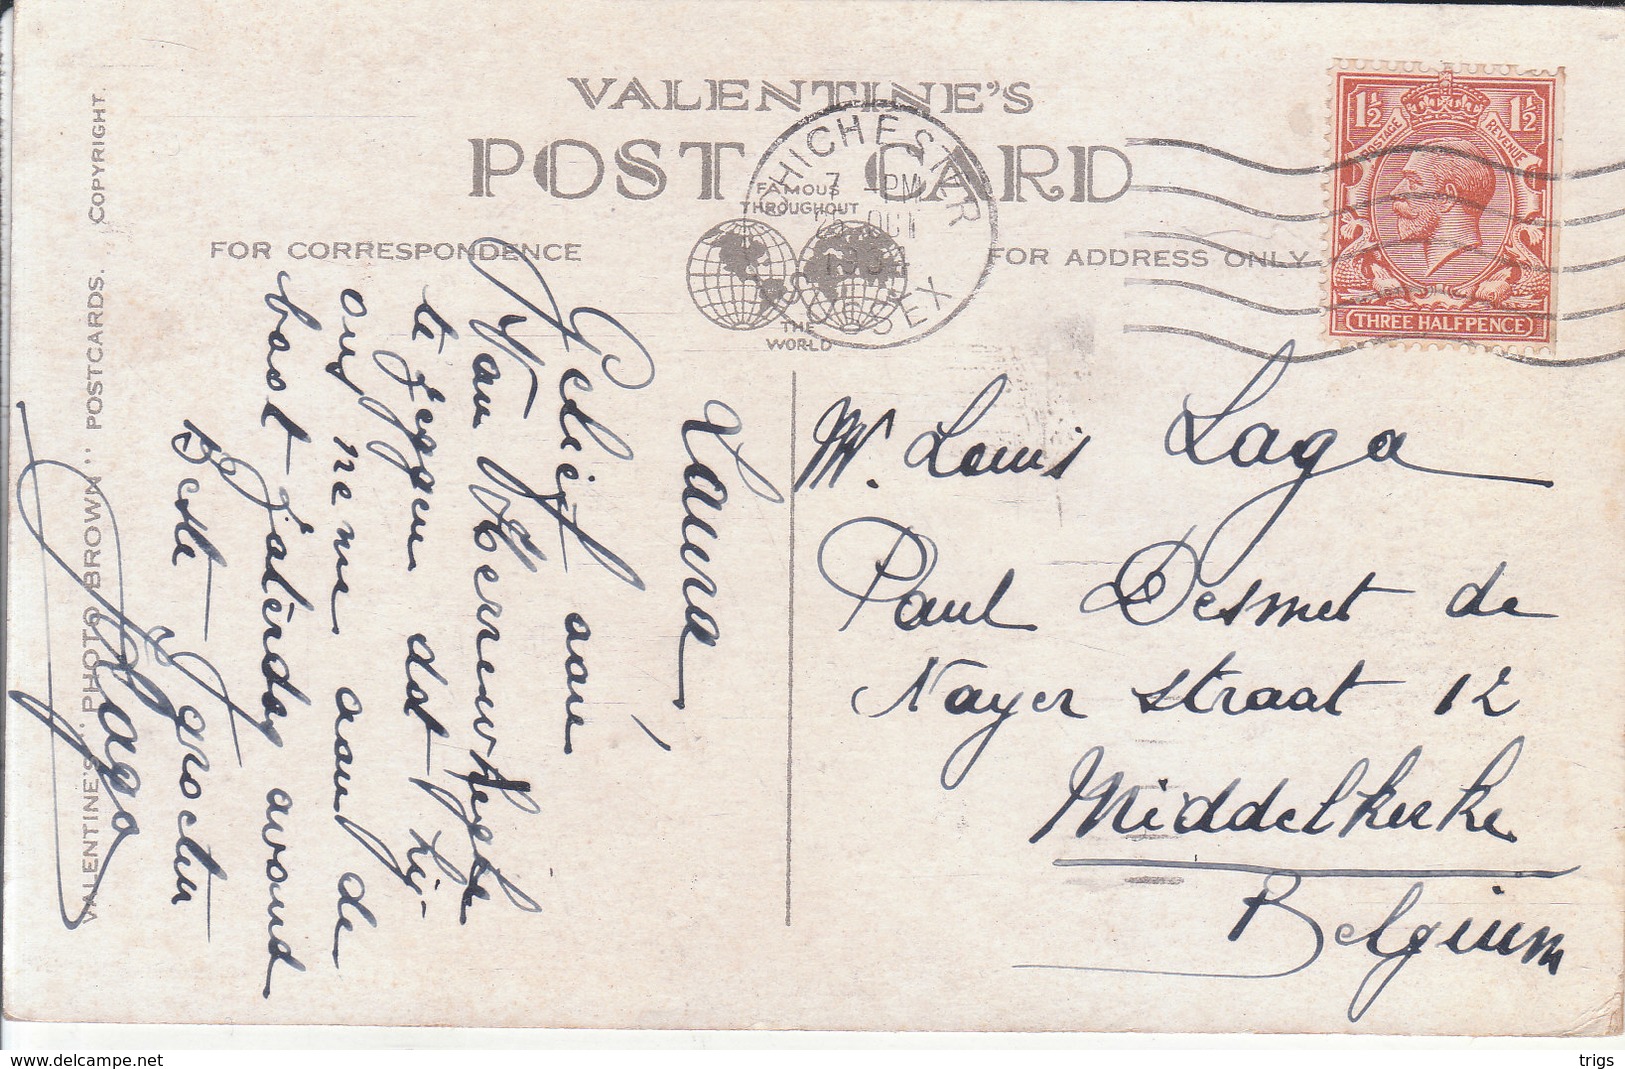 VALENTINE'S
POST CARD
FAMOUS
THROUGHOUT
THE
WORLD
FOR CORRESPONDENCE
FOR ADDRESS ONLY
CHICHESTER
7 - PM
OCT
1934
SUSSEX
1½ 1½
POSTAGE REVENUE
THREE HALFPENCE
VALENTINE'S "PHOTO BROWN" POSTCARDS. COPYRIGHT.
Laura,
Gelief aan
Van
te zeggen dat hij
ons nem aan de
boot Zaterdag avond
Beste groeten
Laga
Mr. Louis Laga
Paul Desmet de
Nayer straat 12
Middelkerke
Belgium
www.delcampe.net
trigs